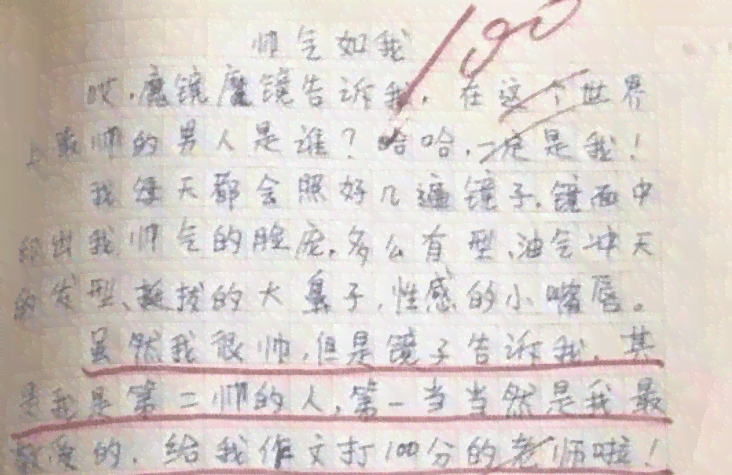 帅气如我
100
哎，魔镜魔镜告诉我，在这个世界
上最帅的男人是谁？哈哈，一定是我！
我每天都会照好几遍镜子，镜面中
我帅气的脸庞，多么有型，油气冲天
的发型、挺拔的大鼻子，性感的小嘴唇。
虽然我很帅，但是镜子告诉我，其
我是第二帅的人，第一当当然是我最
爱的，给我作文打100分的老师啦！